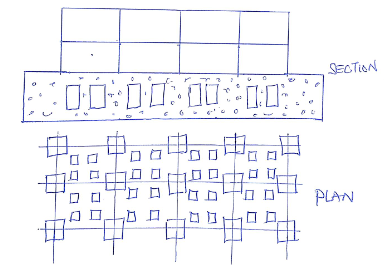 SECTION
PLAN